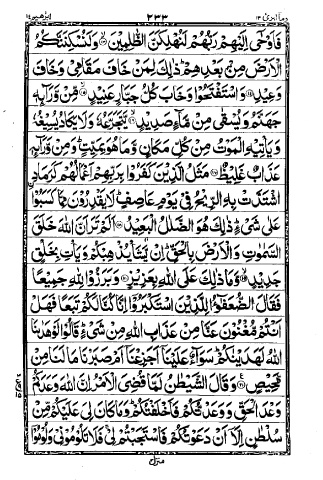 وما ابرئ ۱۳ ۲۳۳ ابرٰهيم ۱۴
فَاَوْحٰۤى اِلَيْهِمْ رَبُّهُمْ لَنُهْلِكَنَّ الظّٰلِمِيْنَ ۙ وَلَنُسْكِنَنَّكُمُ
الْاَرْضَ مِنْۢ بَعْدِهِمْ ؕ ذٰلِكَ لِمَنْ خَافَ مَقَامِيْ وَخَافَ
وَعِيْدِ وَاسْتَفْتَحُوْا وَخَابَ كُلُّ جَبَّارٍ عَنِيْدٍ ۙ مِّنْ وَّرَآىِٕهٖ
جَهَنَّمُ وَيُسْقٰى مِنْ مَّآءٍ صَدِيْدٍ ۙ يَّتَجَرَّعُهٗ وَلَا يَكَادُ يُسِيْغُهٗ
وَيَاْتِيْهِ الْمَوْتُ مِنْ كُلِّ مَكَانٍ وَّمَا هُوَ بِمَيِّتٍ ؕ وَمِنْ وَّرَآىِٕهٖ
عَذَابٌ غَلِيْظٌ مَثَلُ الَّذِيْنَ كَفَرُوْا بِرَبِّهِمْ اَعْمَالُهُمْ كَرَمَادِ
اِۨشْتَدَّتْ بِهِ الرِّيْحُ فِيْ يَوْمٍ عَاصِفٍ ؕ لَا يَقْدِرُوْنَ مِمَّا كَسَبُوْا
عَلٰى شَيْءٍ ؕ ذٰلِكَ هُوَ الضَّلٰلُ الْبَعِيْدُ اَلَمْ تَرَ اَنَّ اللّٰهَ خَلَقَ
السَّمٰوٰتِ وَالْاَرْضَ بِالْحَقِّ ؕ اِنْ يَّشَاْ يُذْهِبْكُمْ وَيَاْتِ بِخَلْقٍ
جَدِيْدٍ ۙ وَّمَا ذٰلِكَ عَلَى اللّٰهِ بِعَزِيْزٍ وَبَرَزُوْا لِلّٰهِ جَمِيْعًا
فَقَالَ الضُّعَفٰٓؤُا لِلَّذِيْنَ اسْتَكْبَرُوْۤا اِنَّا كُنَّا لَكُمْ تَبَعًا فَهَلْ
اَنْتُمْ مُّغْنُوْنَ عَنَّا مِنْ عَذَابِ اللّٰهِ مِنْ شَيْءٍ ؕ قَالُوْا لَوْ هَدٰىنَا
اللّٰهُ لَهَدَيْنٰكُمْ ؕ سَوَآءٌ عَلَيْنَاۤ اَجَزِعْنَاۤ اَمْ صَبَرْنَا مَا لَنَا مِنْ
مَّحِيْصٍ وَقَالَ الشَّيْطٰنُ لَمَّا قُضِيَ الْاَمْرُ اِنَّ اللّٰهَ وَعَدَكُمْ
وَعْدَ الْحَقِّ وَوَعَدْتُّكُمْ فَاَخْلَفْتُكُمْ ؕ وَمَا كَانَ لِيَ عَلَيْكُمْ مِّنْ
سُلْطٰنٍ اِلَّاۤ اَنْ دَعَوْتُكُمْ فَاسْتَجَبْتُمْ لِيْ ۚ فَلَا تَلُوْمُوْنِيْ وَلُوْمُوْۤا
منزل